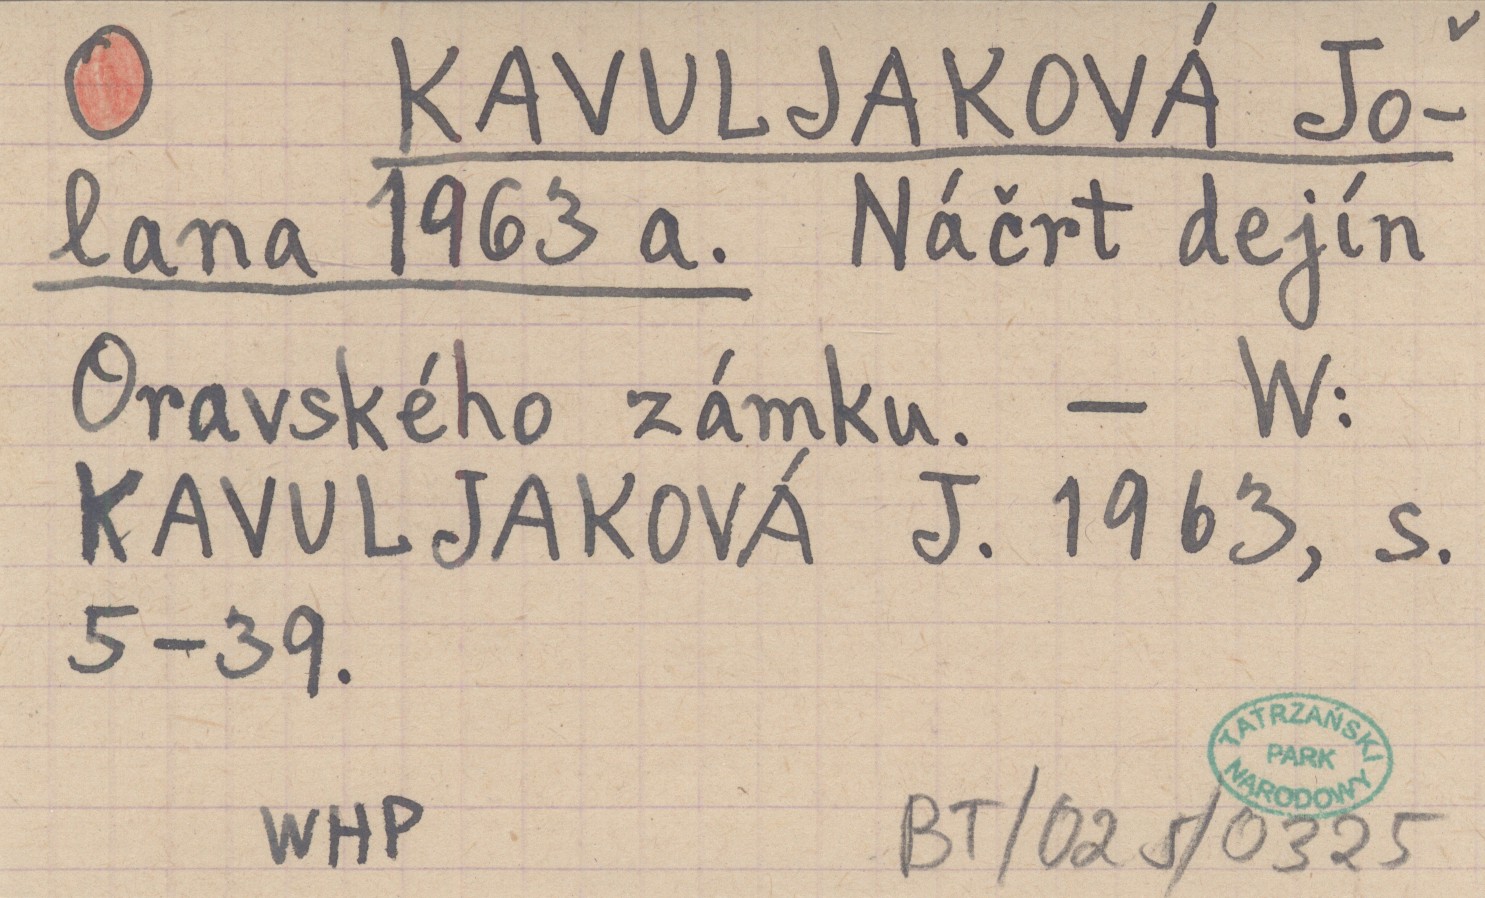 KAVULJAKOVÁ Jo-
lana 1963 a. Náčrt dejín
Oravského zámku. — W:
KAVULJAKOVÁ J. 1963, s.
5-39.
TATRZAŃSKI
PARK
NARODOWY
WHP
BT/025/0325